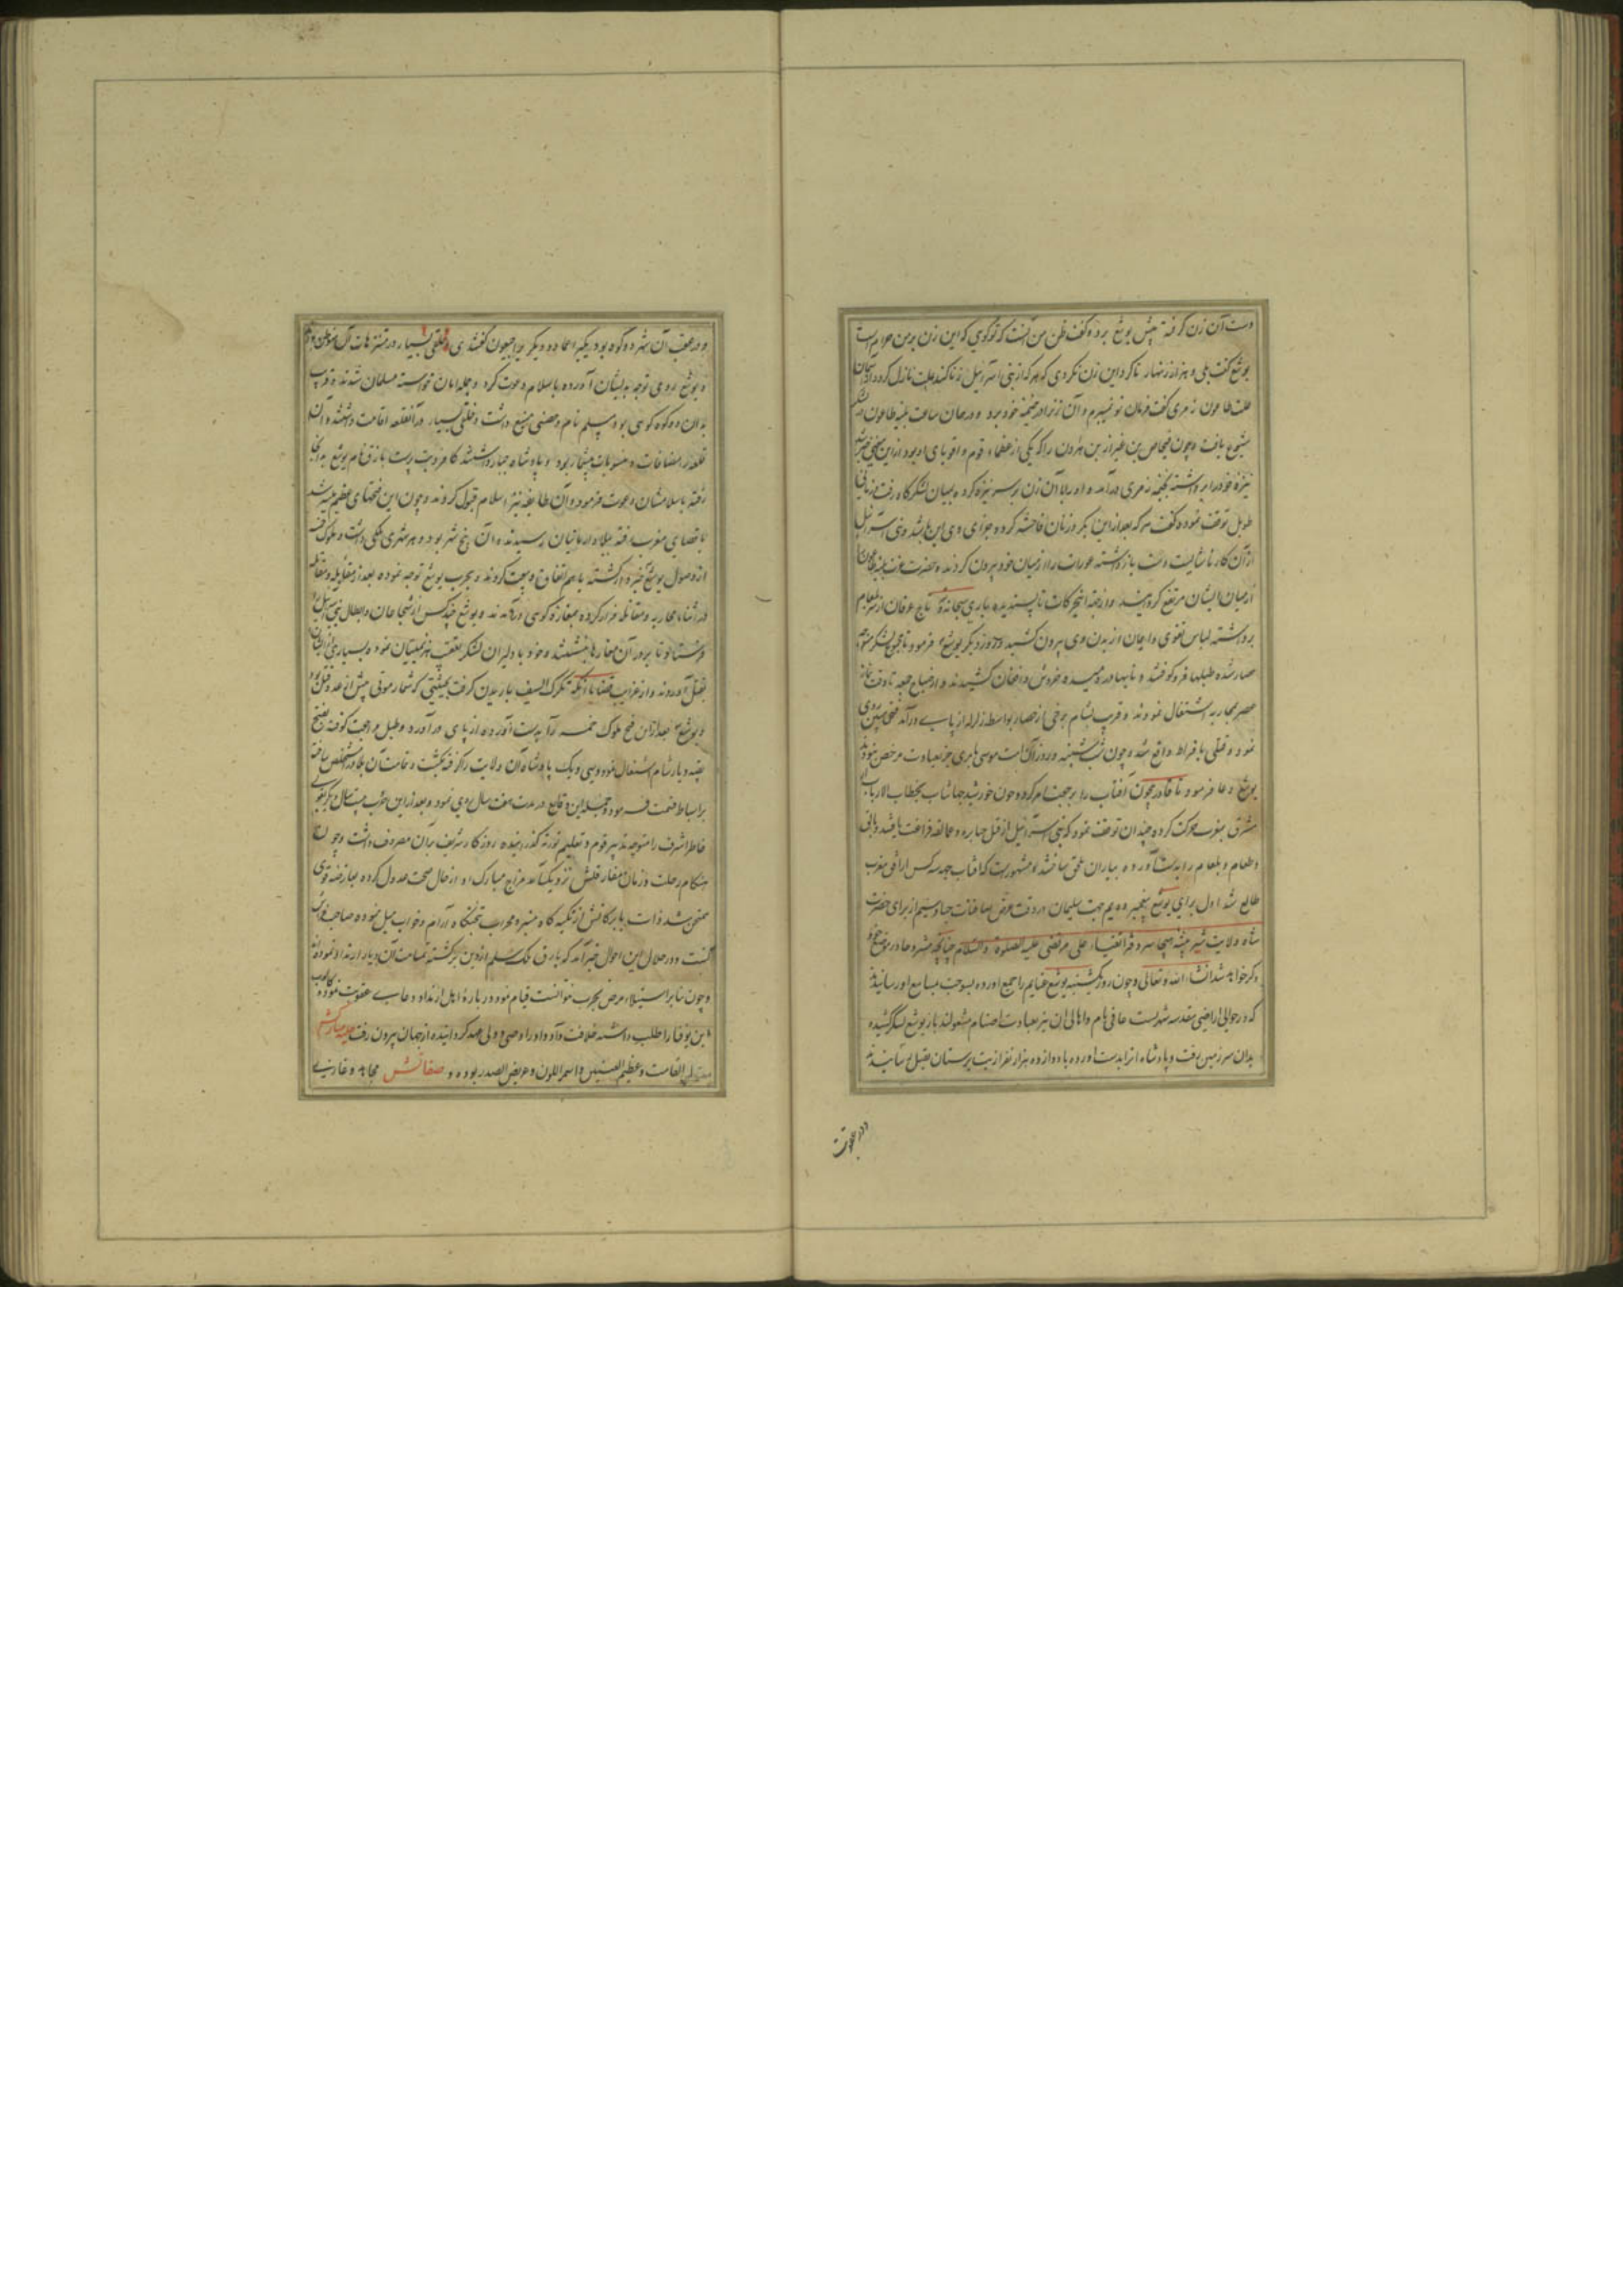 دست آن زن گرفته پیش یوشع برد و گفت ظن من آنست که تو گوئی که این زن بر من حرام است
یوشع گفت بلی و هزار زنهار تا گرد این زن نگردی که هر که از بنی اسرائیل زنا کند علت نازل گردد از آسمان
علت طاعون زمری گفت فرمان تو نمیبرم و آن زن را در خیمه خود برد و در همان ساعت بلیه طاعون در لشکر
شیوع یافت و چون فنحاص بن عیزار بن هارون را که یکی از عظماء قوم و اقربای او بود از این معنی خبر شد
نیزه خود را برداشته بخیمه زمری درآمد و او را با آن زن بر سر نیزه کرده بمیان لشکرگاه رفت و زمانی
طویل توقف نموده گفت هر که بعد از این با بکر و زنان فاحشه کرده جزای وی این باشد و بنی اسرائیل
از آن کار ناشایست دست باز داشته عورات را از میان خود بیرون کردند و حضرت عزت بلیه طاعون را
از میان ایشان مرتفع گردانید و از جهة این حرکات ناپسندیده باری سبحانه تاج عرفان از سر بلعام
برداشته لباس تقوی و ایمان از بدن وی بیرون کشید و روز دیگر یوشع فرمود تا مجموع لشکر متوجه
حصار شده طبلها فرو کوفتند و نایها در دمیده خروش و افغان کشیدند و از صباح جمعه تا وقت نماز
عصر بمحاربه اشتغال نمودند و قریب بشام برخی از حصار بواسطه زلزله از پای درآمد فتحی مبین روی
نمود و قتلی بافراط واقع شد و چون شب شنبه و روز آن امت موسی بامری جز عبادت مرخص نبودند
یوشع دعا فرمود تا قادر بیچون آفتاب را برجعت امر کرد و چون خورشید جهانتاب بخطاب رب الارباب از
مشرق بمغرب حرکت کرده چندان توقف نمود که بنی اسرائیل از قتل جبابره و عمالقه فراغت یافتند و باقی
و بلعام را بدست آورده بیاران ملحق ساختند و مشهور است که آفتاب جهة سه کس از افق مغرب
طالع شد اول برای یوشع پیغمبر دویم جهت سلیمان در وقت عرض صافنات جیاد سیم از برای حضرت
شاه ولایت شیر بیشه هیجا سرور اتقیاء علی مرتضی علیه الصلوة والسلام چنانچه مشروحا در موضع خود
ذکر خواهد شد انشاء الله تعالی و چون روز یکشنبه یوشع غنایم را جمع آورده بسوخت بمسامع او رسانیدند
که در حوالی اراضی مقدسه شهریست عافی نام و اهالی آن نیز بعبادت اصنام مشغولند باز یوشع لشکر کشیده
بدان سرزمین رفت و پادشاه انرا بدست آورده با دوازده هزار نفر از بت پرستان بقتل رسانیدند
و در عقب
و در عقب آن شهر دو کوه بود یکی را عماد و دیگر را جیعون گفتندی و خلقی بسیار در متنزهات آن متوطن بودند
و یوشع روی توجه بدیشان آورده باسلام دعوت کرد و جمله امان خواسته مسلمان شدند و قریب
بدان دو کوه کوهی بود سلم نام و حصنی منیع داشت و خلقی بسیار در آنقلعه اقامت داشتند و آن
قلعه را مضافات و منسوبات بیشمار بود و پادشاه جبار داشتند کافر و بت پرست بارق نام یوشع به آنجا
رفته باسلامشان دعوت فرمود و آن طایفه نیز اسلام قبول کردند و چون این فتحهای عظیم میسر شد
باقصای مغرب رفته ببلاد ارمانیان رسیدند و آن پنج شهر بود و هر شهری ملکی داشت و ملوک خمسه
از وصول یوشع خبردار گشته با هم اتفاق و بیعت کردند و بحرب یوشع توجه نموده بعد از مقابله و مقاتله
در اثنای محاربه و مقاتله فرار کرده بمغاره کوهی درآمدند و یوشع چند کس از شجاعان و ابطال بنی اسرائیل
فرستاد تا بر در آن مغارها بنشستند و خود با دلیران لشکر بعقب هزیمتیان نمود و بسیاری از ایشان
بقتل آوردند و از غرایب قضایا آنکه تگرگ السیف باریدن گرفت بحیثیتی که شمار موتی بیش از عدد قتلی بود
و یوشع بعد از آن فتح ملوک خمسه را بدست آورده از پای درآورد و طبل مراجعت کوفته بفتح
بقیه دیار شام اشتغال نمود و سی و یک پادشاه آن ولایت را گرفته بکشت و تمامت آن بلاد مستخلص ساخته
بر اسباط قسمت فرمود و جمله این وقایع در مدت هفت سال روی نمود و بعد از این حرب بیست سال دیگر یوشع
خاطر اشرف را متوجه تدبیر قوم و تعلیم تورته گذرانیده روزگار شریف بر آن مصروف داشت و چون
هنگام رحلت و زمان مفارقتش نزدیک آمد مزاج مبارک او از حال صحت عدول کرده بعارضه قوی
ممتحن شد ذات بابرکاتش از تکیه گاه منبر و محراب تختگاه آرام و خواب میل نموده صاحب فراش
گشت و در خلال این احوال خبر آمد که بارق ملک سلم از دین برگشته تمامت آن دیار ارتداد نموده اند
و چون بنابر استیلاء مرض بحرب نتوانست قیام نمود درباره اهل ارتداد دعای عقوبت نمود و کالوب
بن یوفنا را طلب داشته خلافت داد و او را وصی و ولی عهد گردانیده از جهان بیرون رفت حلیه مبارکش
معتدل القامت و عظیم العینین و اسمر اللون و عریض الصدر بوده و صفاتش مجاهد و غازی